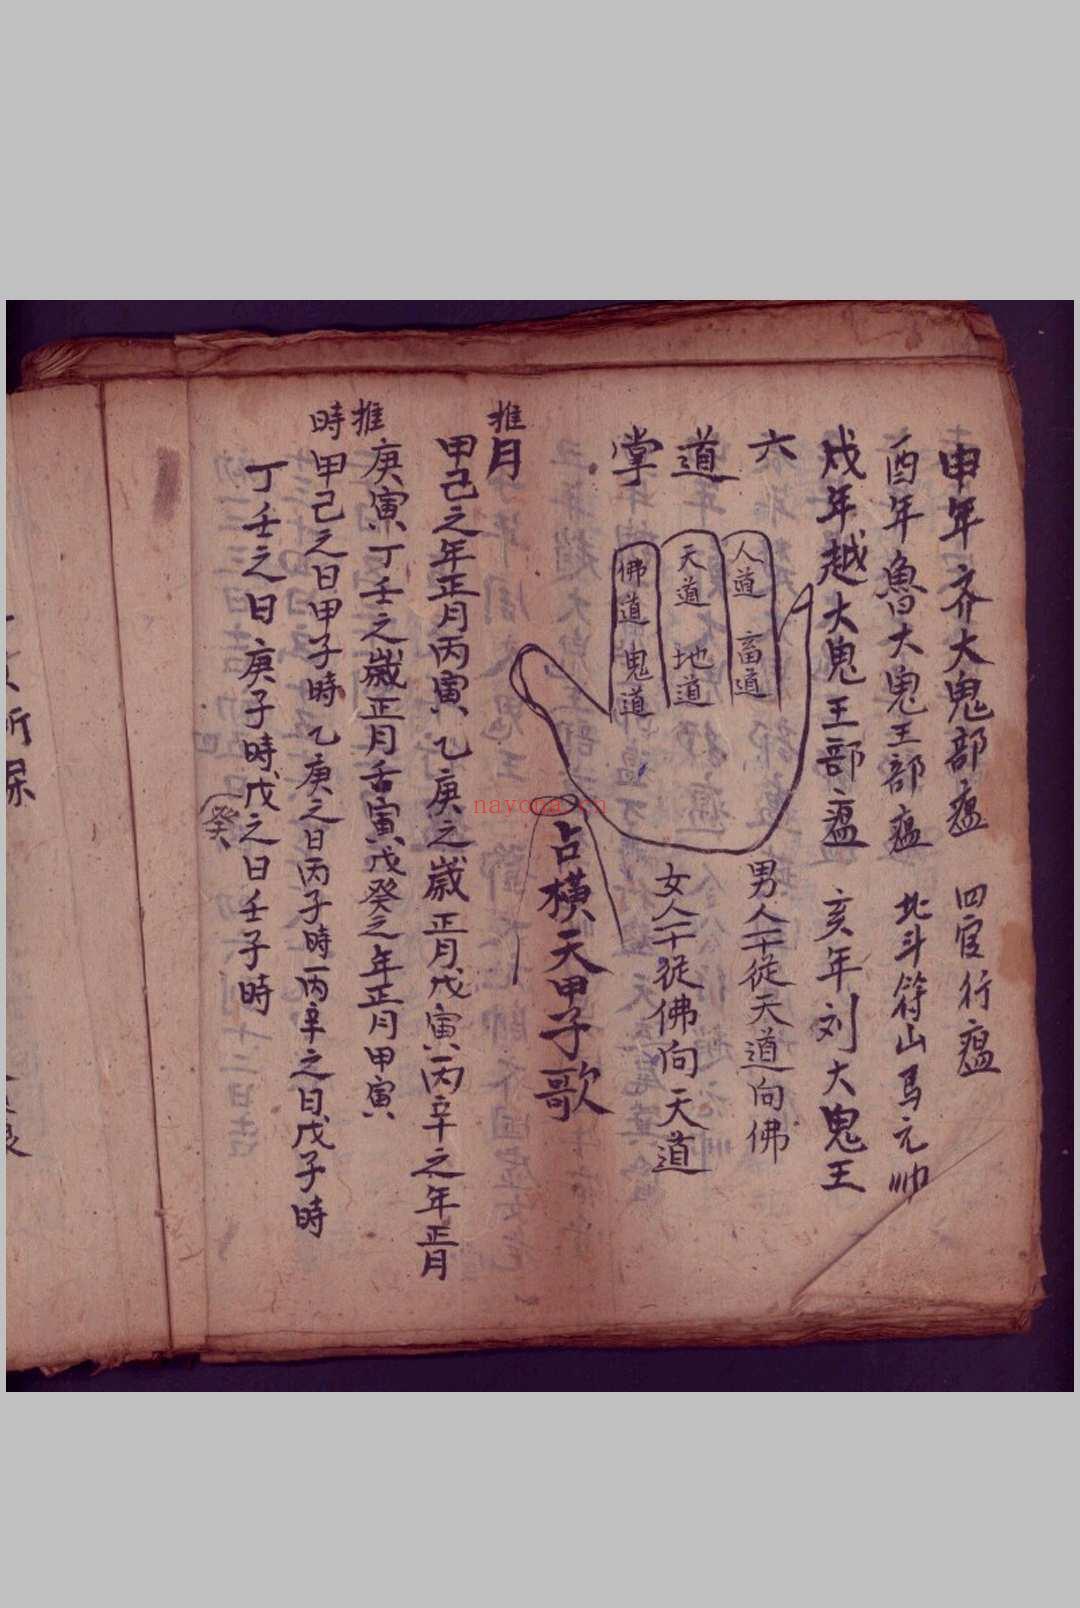 申年齐大鬼部瘟 四官行瘟
酉年魯大鬼王部瘟 北斗符山馬元帅
戌年越大鬼王部瘟 亥年刘大鬼王
六道掌
人道 畜道
天道 地道
佛道 鬼道
男人千從天道向佛
女人千從佛向天道
占横天甲子歌
推月
甲己之年正月丙寅乙庚之歲正月戊寅丙辛之年正月
庚寅丁壬之歲正月壬寅戊癸之年正月甲寅
推時
甲己之日甲子時乙庚之日丙子時丙辛之日戊子時
丁壬之日庚子時戊之日壬子時
癸
nayona.cn